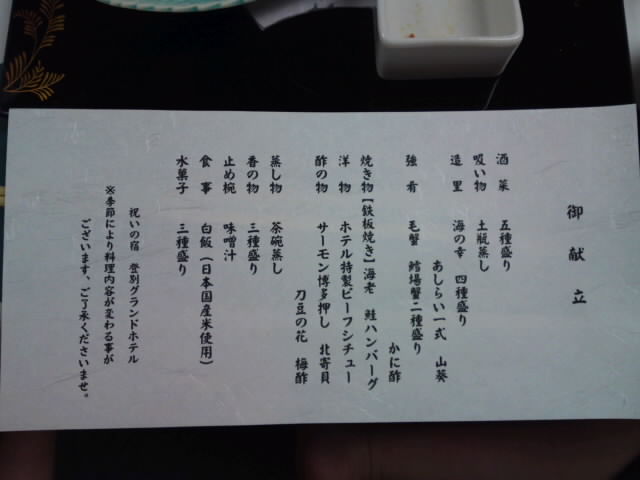 御献立
酒菜 五種盛り
吸い物 土瓶蒸し
造里 海の幸 四種盛り
あしらい一式 山葵
強肴 毛蟹 鱈場蟹二種盛り
かに酢
焼き物【鉄板焼き】海老 鮭ハンバーグ
洋物 ホテル特製ビーフシチュー
酢の物 サーモン博多押し 北寄貝
刀豆の花 梅酢
蒸し物 茶碗蒸し
香の物 三種盛り
止め椀 味噌汁
食事 白飯(日本国産米使用)
水菓子 三種盛り
祝いの宿 登別グランドホテル
※季節により料理内容が変わる事が
ございます、ご了承くださいませ。